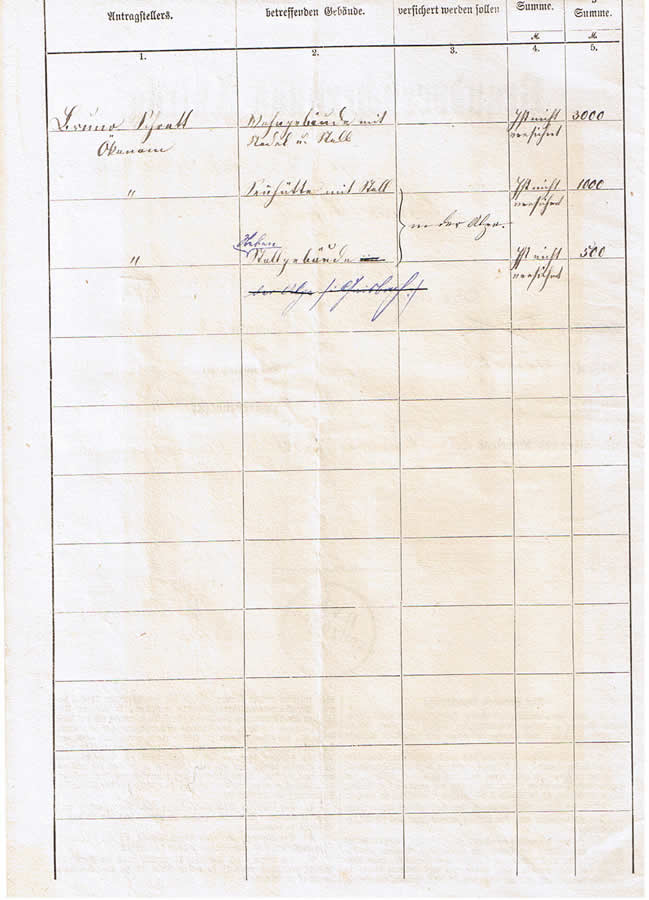 Antragstellers. betreffenden Gebäude. versichert werden sollen Summe. Summe.
M. M.
1. 2. 3. 4. 5.
Bruno Schratt Wohngebäude mit Ist nicht 3000
Ökonom Stadel u. Stall versichert
" Sennhütte mit Stall Ist nicht 1000
versichert
in der Alpe.
Neben
" Stallgebäude Ist nicht 500
versichert
der Alpe